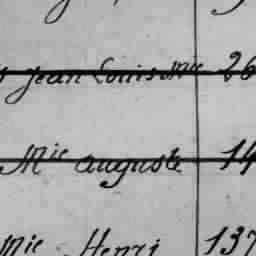 Jean Louis Mie 26
Mie auguste 14
Mie Henri 137